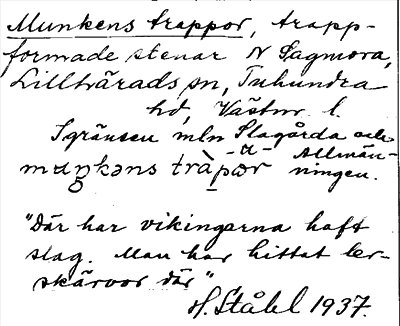 Munkens trappor, trapp-
formade stenar N Sagmora,
Lillhärads sn, Tuhundra
hd, Västm. l.
I gränsen mln Slagårda och
-u- Allmän-
muŋkəns tràpər ningen.
"Där har vikingarna haft
slag. Man har hittat ler-
skärvor där"
H. Ståhl 1937.